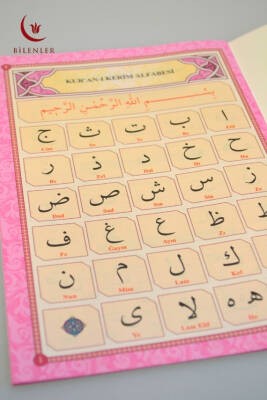 BİLENLER
KUR'AN-I KERİM ALFABESİ
بِسْمِ اللهِ الرَّحْمٰنِ الرَّحِيمِ
ا ب ت ث ج
Elif Be Te Se Cim
ح خ د ذ ر
Ha Hı Dal Zel Re
ز س ش ص ض
Ze Sin Şın Sad Dad
ط ظ ع غ ف
Tı Zı Ayın Gayın Fe
ك ل م ن
Kef Lam Mim Nun
و ه ه لا ى
He Lam Elif Ye